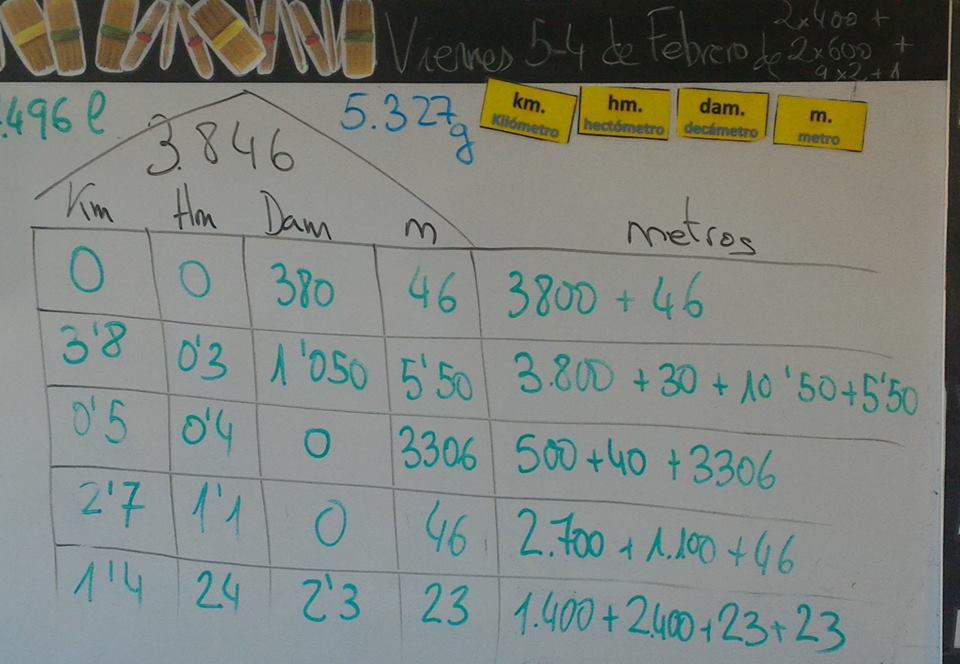 Viernes 5-4 de Febrero de
2x400 +
2x600 +
9x2+1
.496 l
5.327 g
km.
Kilómetro
hm.
hectómetro
dam.
decámetro
m.
metro
3.846
Km Hm Dam m metros
0 0 380 46 3800 + 46
3'8 0'3 1'050 5'50 3.800 + 30 + 10'50 + 5'50
0'5 0'4 0 3306 500 + 40 + 3306
2'7 1'1 0 46 2.700 + 1.100 + 46
1'4 24 2'3 23 1.400 + 2.400 + 23 + 23